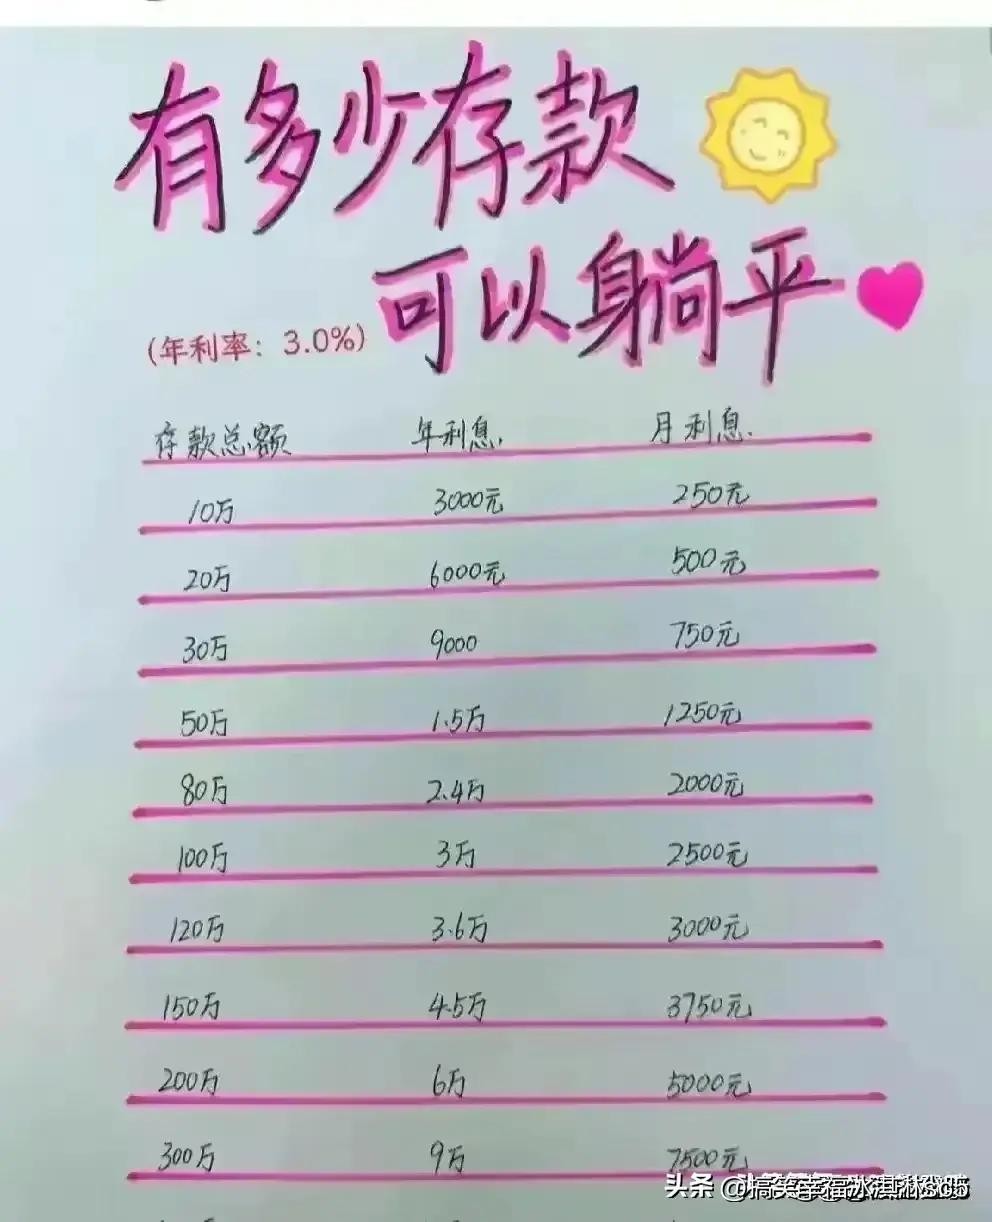 有多少存款
可以躺平
(年利率：3.0%)
存款总额 年利息 月利息
10万 3000元 250元
20万 6000元 500元
30万 9000 750元
50万 1.5万 1250元
80万 2.4万 2000元
100万 3万 2500元
120万 3.6万 3000元
150万 4.5万 3750元
200万 6万 5000元
300万 9万 7500元
头条